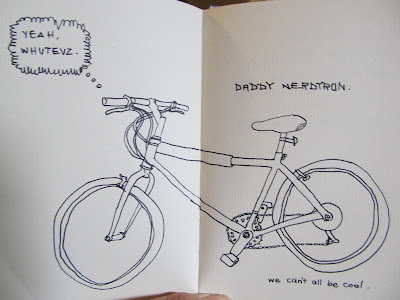 YEAH,
WHUTEVZ.
DADDY NERDTRON.
we can't all be cool.